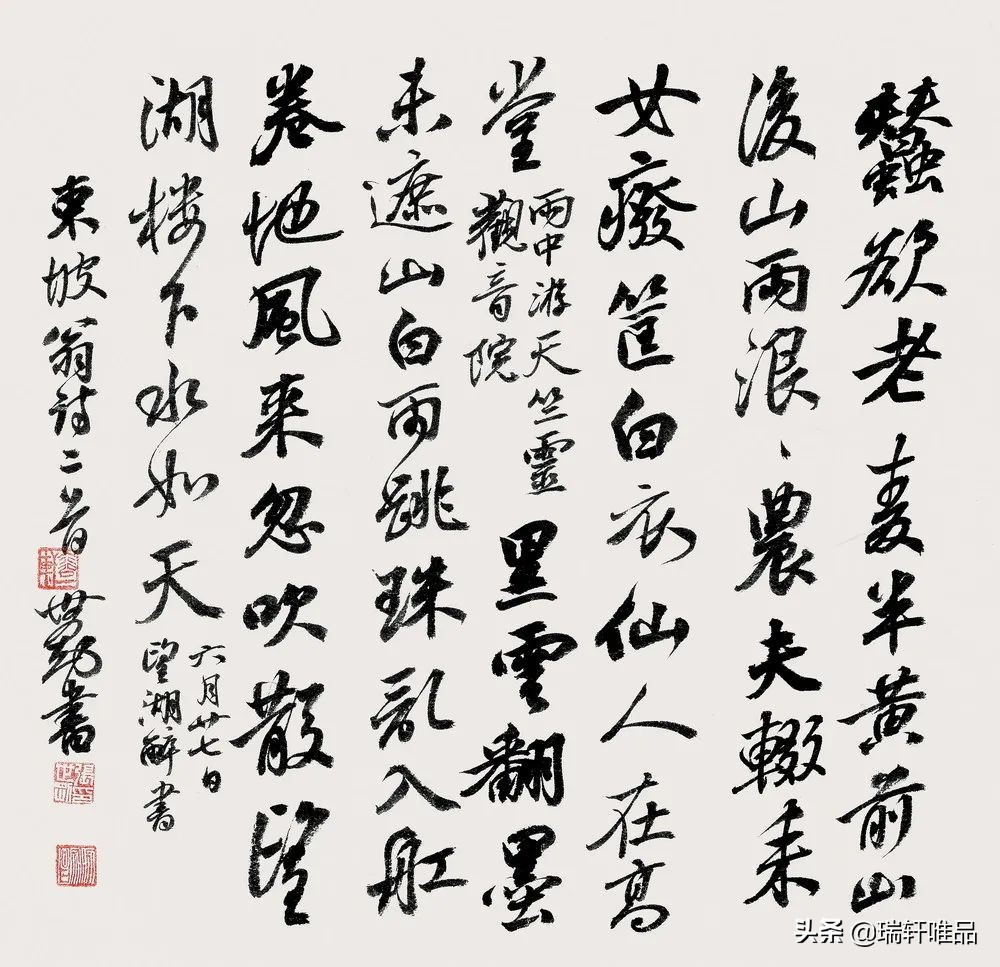 蠶欲老麦半黄前山
後山雨浪、農夫輟耒
女廢筐白衣仙人在高
堂
雨中游天竺靈
觀音院
黑雲翻墨
未遮山白雨跳珠亂入舡
卷地風来忽吹散望
湖楼下水如天
六月廿七日
望湖醉書
東坡翁詩二首
世勤書
头条 @瑞轩唯品